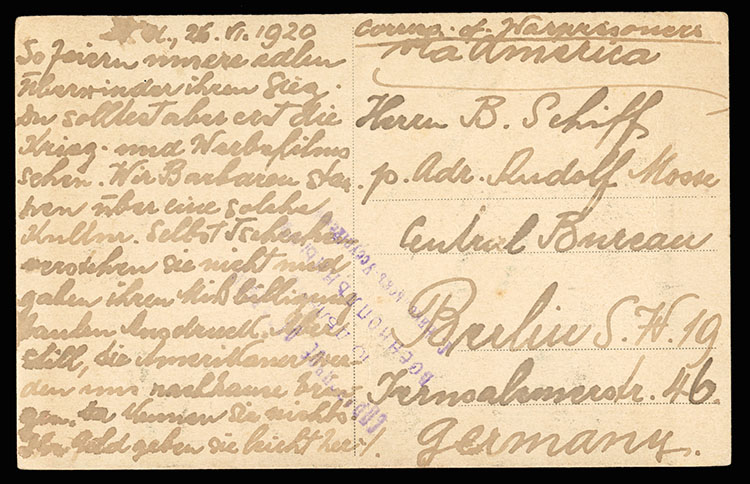 26. VI. 1920
So feiern unsere edlen
Überwinder ihren Sieg.
Du solltest aber erst die
Krieg- und Werbefilms
sehen. Wir Barbaren star-
ren über eine solche
Kultur. Selbst Tschechen
verstehen sie nicht und
gaben ihren Mißbilligung
Ausdruck. Aber
still, die Amerikaner wer-
den uns nachhause brin-
gen. können sie nichts
Ihr Geld geben sie leicht her!
Corresp. of Warprisoners
via America
Herrn B. Schiff
p. Adr. Rudolf Mosse
Central Bureau
Berlin S.W. 19
Jerusalemerstr. 46.
Germany.